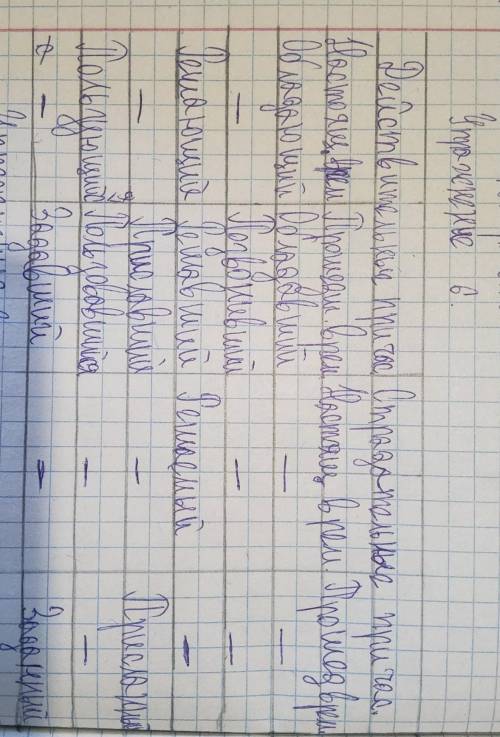 Упражнение 6.
Действительные причас. Страдательные причас.
Настоящ. врем Прошедш. врем Настоящ. врем. Прошед врем
Обладающий Обладавший — —
— Позвонивший — —
Решающий Решавший Решаемый —
— Приславший — Присланный
Пользующийся Пользовавшийся — —
— Задавший — Заданный